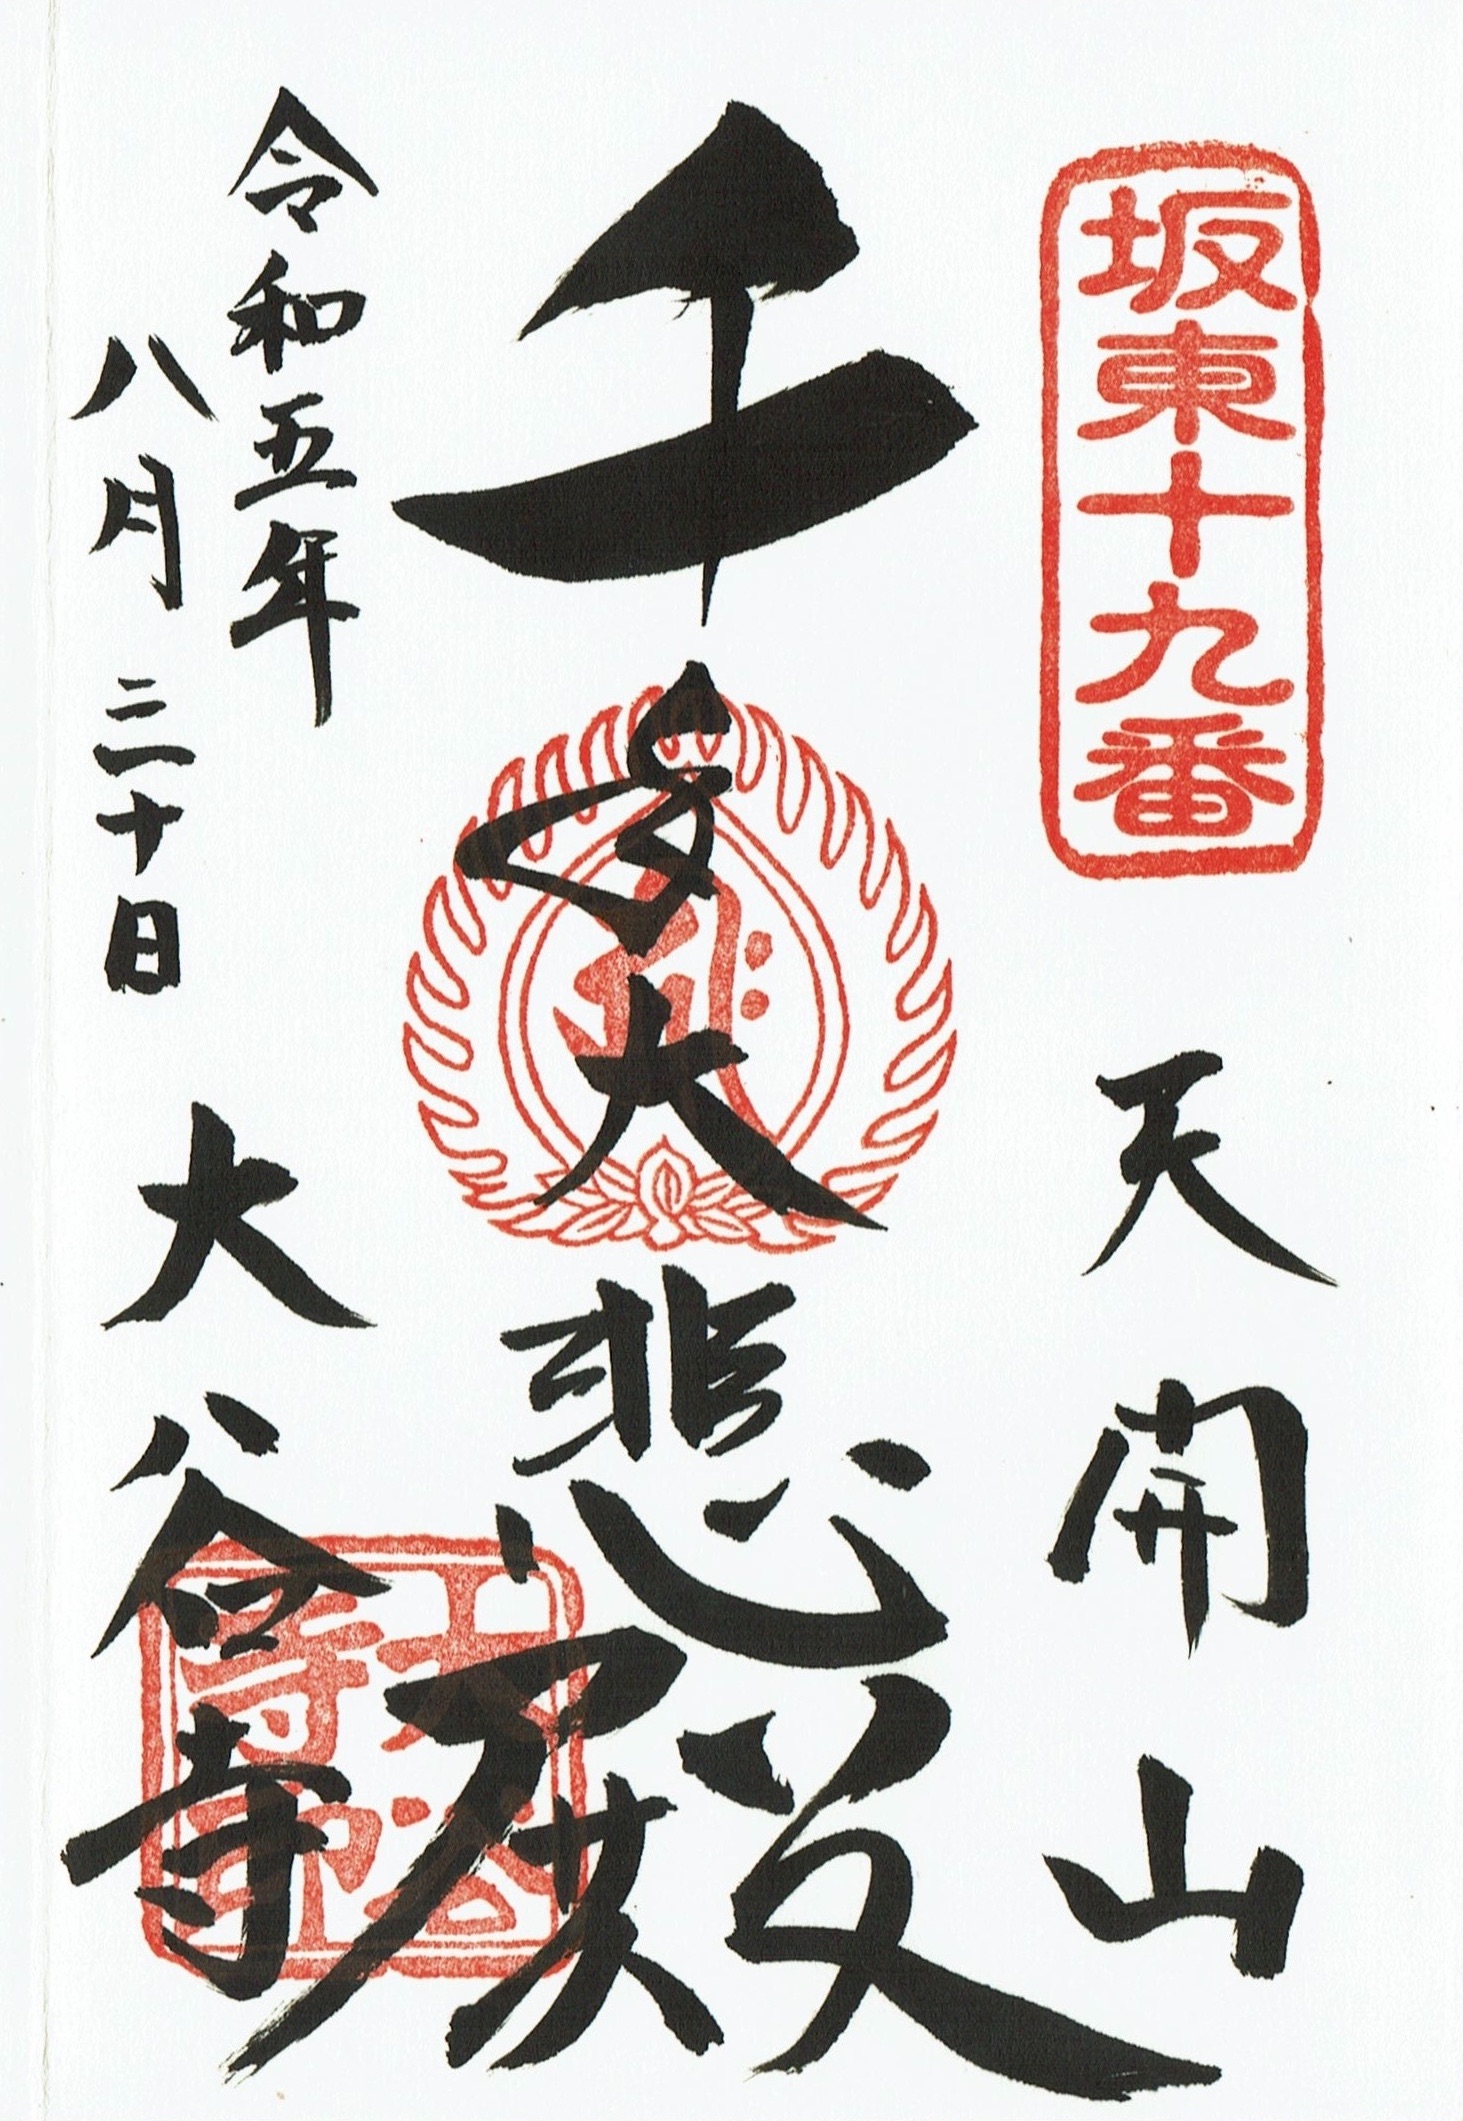 坂東十九番
天開山
千手大悲殿
令和五年
八月三十日
大谷寺
大谷
寺印